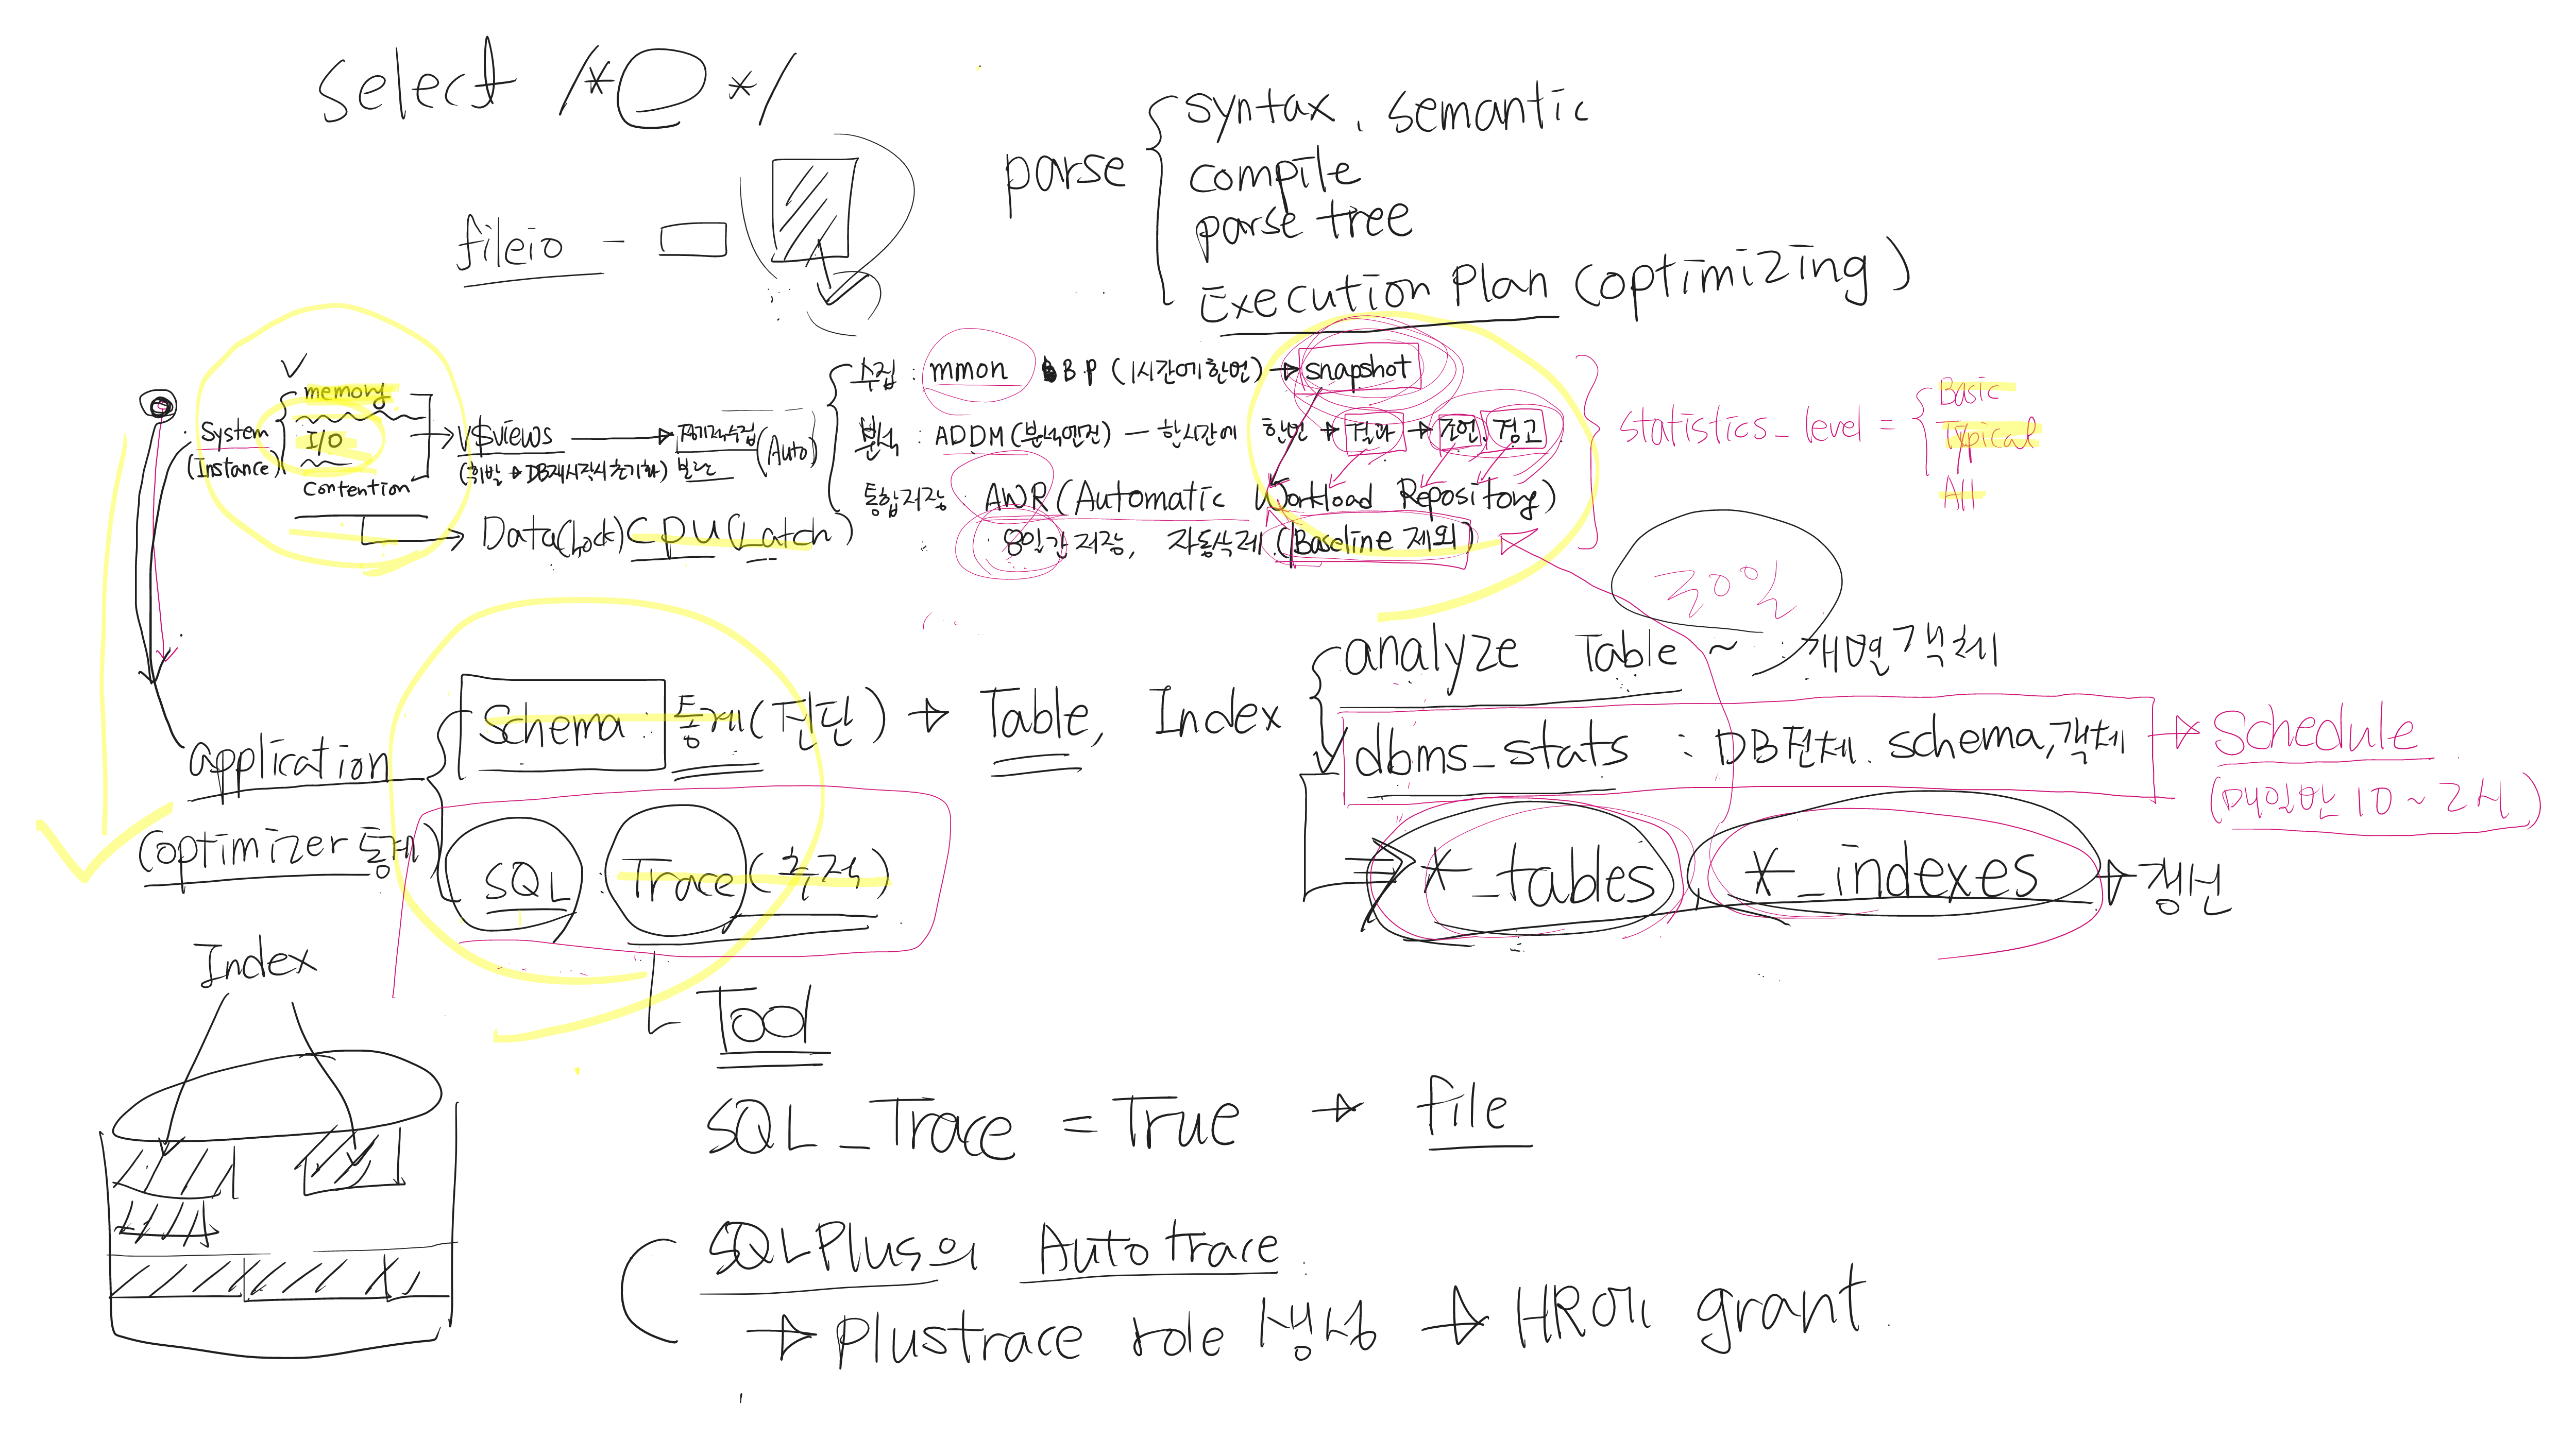 select /* */
parse
syntax, semantic
compile
parse tree
Execution Plan (optimizing)
fileio -
System
(Instance)
memory
I/O
Contention
V$views
(휘발 → DB재시작시 초기화)
정기적수집
필요
(Auto)
Data(Lock) CPU(Latch)
수집 : mmon BP (1시간에 한번) → snapshot
분석 : ADDM(분석엔진) - 한시간에 한번 → 결과 → 조언, 경고
통합저장 : AWR(Automatic Workload Repository)
8일간 저장, 자동삭제 (Baseline 제외)
statistics_level =
Basic
Typical
All
30일
application
(optimizer 통계)
Schema : 통계(진단) → Table, Index
SQL : Trace(추적)
analyze Table ~ 개별객체
dbms_stats : DB전체. schema, 객체 → Schedule
(매일밤 10~2시)
*_tables, *_indexes → 갱신
Index
Tool
SQL_Trace = True → file
SQLPlus의 Autotrace
→ Plustrace role 생성 → HR에 grant.